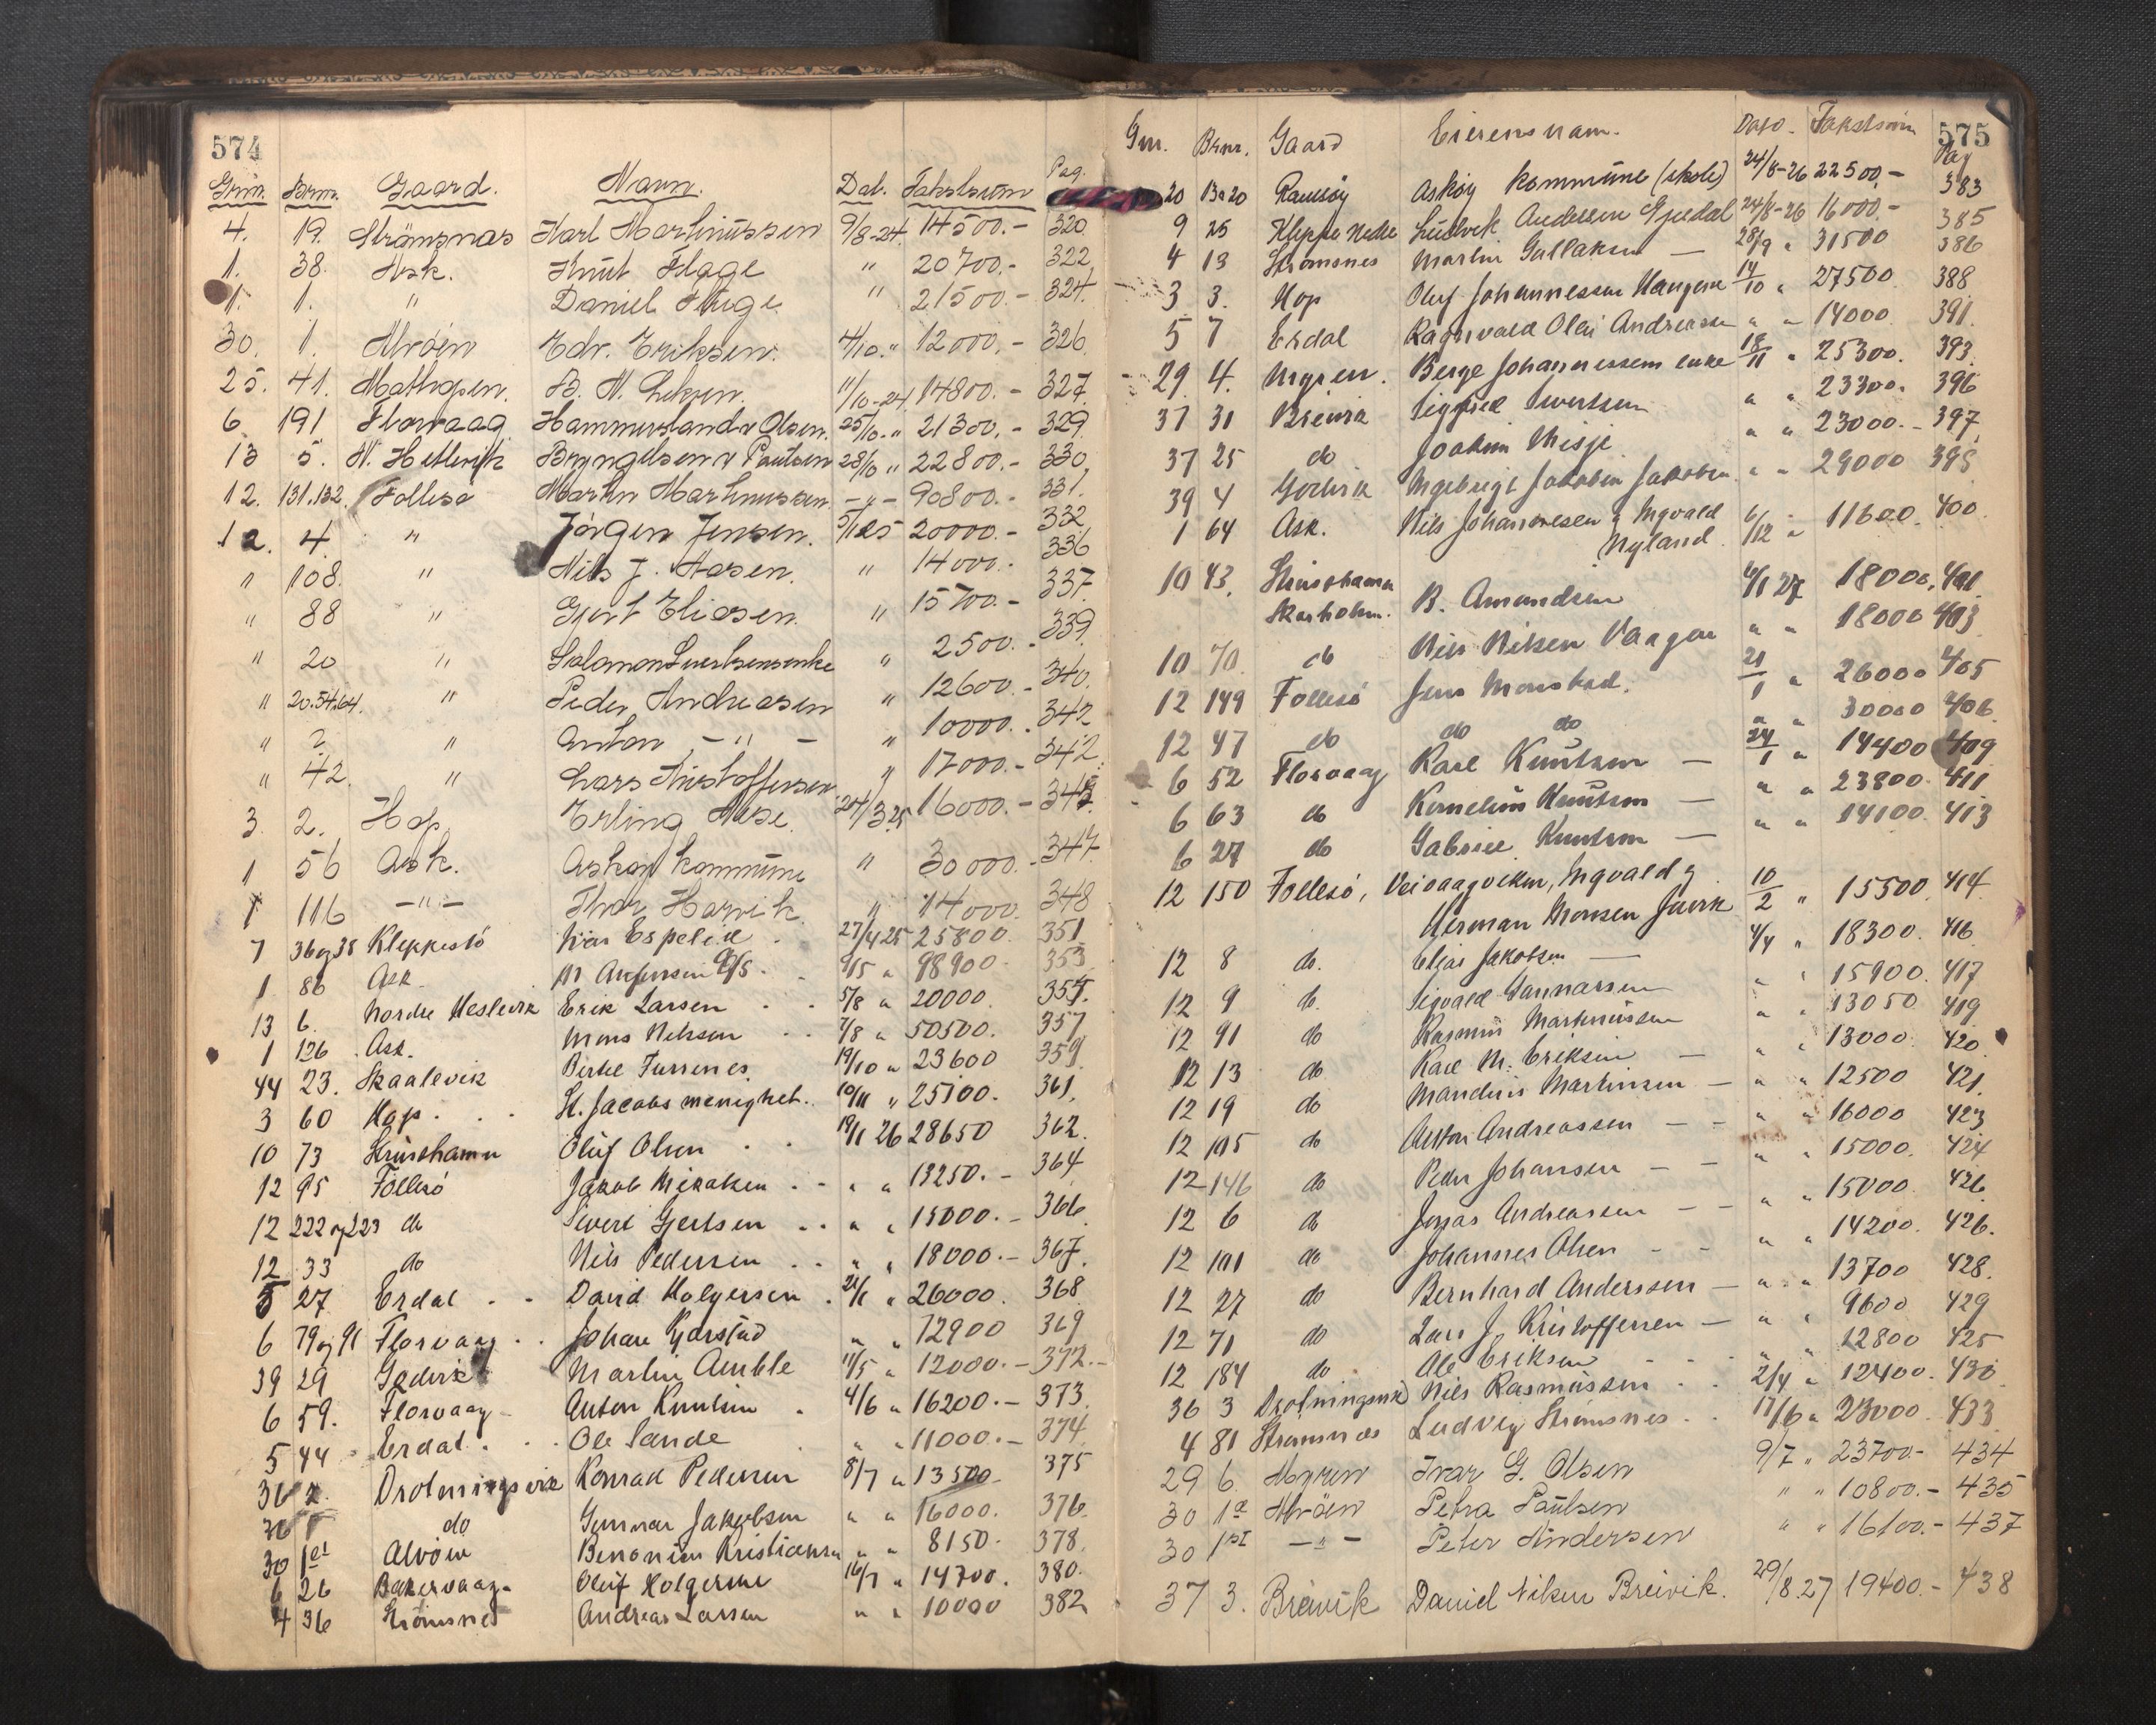 574
Gnr. Brnr. Gaard. Navn. Dat. Takstsum Pag.
4. 19. Strömsnæs Karl Martinussen 9/8-24. 14500.- 320
1. 38. Ask. Knut Hage " 20700.- 322
1. 1. " Daniel " 21500.- 324.
30. 1. Alvöen Edv. Eriksen. 4/10." 12000.- 326
25. 41. Mathopen. B. N. 11/10-24 14800.- 327.
6 191 Florvaag Hammersland & Olsen. 25/10-" 21300.- 329
13 5. N. Hetlevik Bryngelsen & Paulsen 28/10 " 22800.- 330
12. 131.132 Follesø Martin Martinussen -"- 90800.- 331.
12. 4. " Jørgen Jensen. 5/1 25 20000.- 332
" 108. " Nils J. Aasen. " 14000.- 336
" 88 " Gjert Eliasen. " 15700.- 337.
" 20 " Salomon Sivertsens enke " 2500.- 339.
" 20.54.64. " Peder Andreasen " 12600.- 340.
" ? " Anton -"- " 10000.- 342
" 42. " Lars Kristoffersen " 17000.- 342
3. 2. Hop Erling 24/3 25 16000.- 345
1 56 Ask. Askøy kommune " 30000.- 347.
1 116 -"- Thor Harvik " 14000. 348
7 36 og 38 Kleppestö Espelid. 27/4 25 25800. 351
1 86 Ask. A/S. 9/5 " 98900. 353
13 6. Nordre Heslevik Erik Larsen . . 5/8 " 20000. 355.
1 126 Ask. Mons Nilsson . . 7/8 " 50500. 357
44 23. Skaalevik Birte Furrenes 19/10 " 23600 359.
3 60 Hop. . . St. Jacobs menighet. 10/11 " 25100. 361.
10 73 Strusshamn Oluf Olsen . . 19/1 26 28650 362.
12 95 Follesö Jakob Mikalsen . - " " 13250.- 364
12 222 og 223 do Sivert Gjertsen . . " " 15000.- 366
12 33 do Nils Pedersen . . " " 18000.- 367.
5 27 Erdal . . David Holgersen . 21/1 " 26000. 368
6 79 og 91 Florvaag . . Johan Kjørstad " " 12900 369
39 29 Godvik Martin Amble 11/5 " 12000.- 372.-
6 59. Florvaag - Anton Knutsen . 4/6 " 16200.- 373
5 44 Erdal . . . Ole Sande . " " 11000.- 374
36 2. Drotningsvik Konrad Pedersen 8/7 " 13500 375
36 1 do Gunnar Jakobsen " " 16000. 376.
30 1 Alvöen Benonien Kristiansen " " 8150. 378.
6 26 Bakervaag. Oluf Holgersen 16/7 " 14700. 380.
4 36 Strömsnes Andreas Larsen " " 10000 382
575
Gnr. Brnr. Gaard Eierens navn. Dato. Takstsum Pag
20 13a20 Ramsöy Askøy kommune (skole) 24/8-26 22500.- 383
9 25 Kleppe Nedre Ludvik Anderssen Gjerdal 24/8-26 16000.- 385
4 13 Strömsnes Martin Gullaksen - 28/9 " 31500 386
3 3. Hop Oluf Johannessen Haugen 14/10 " 27500 388
5 7 Erdal Ragnvald Olai Andreassen " " 14000. 391.
29 4. Myren. Berge Johannessens enke 18/11 " 25300. 393.
37 31 Breivik Sigfried Sivertsen " " 23300. 396
37 25 do Joakim Misje " " 23000.- 397
39 4 Godvik Ingebrigt Jakobsen Jakobsen " " 29000 398
1 64 Ask. Nils Johannesen & Ingvald Myland 6/12 " 11600. 400
10 43. Strusshamn Skarholm. B. Amundsen 4/1 27 18000. 401.
10 70. do Nils Nilsen Vaagen " " 18000 403
12 149 Follesö Jens Monstad. 21/1 " 26000 405
12 47 do do do " " 30000 406
6 52 Florvaag Karl Knutsen - 24/1 " 14400 409
6 63 do Kornelius Knutsen - " " 23800. 411
6 27 do Gabriel Knutsen - " " 14100. 413
12 150 Follesö, Veivaagvikken, Ingvald & Herman Monsen Juvik 10/2 " 15500 414
12 8 do. Elias Jakobsen - 4/4 " 18300. 416
12 9 do. Sigvald Gunnarsen " " 15900. 417
12 91 do Rasmus Martinussen " " 13050 419
12 13 do Karl M. Eriksen - " " 13000. 420.
12 19 do Mandius Martinsen - " " 12500 421.
12 105 do Anton Andreassen - - " " 16000 423
12 146 do Peder Johansen - - " " 15000. 424
12 6 do Jonas Andreassen - - " " 15000 426.
12 101 do Johannes Olsen - - " " 14200. 426.
12 27 do Bernhard Anderssen - " " 13700 428.
12 71 do Lars J. Kristoffersen - " " 9600 429
12 184 do Ole Eriksen - - - " " 12800 425
36 3 Drotningsvik Nils Rasmussen . . 2/4 " 12400. 430
4 81 Strømsnes Ludvig Strømsnes . . 17/6 " 23000. 433
29 6. Myren Ivar G. Olsen 9/7 " 23700.- 434
30 1a Alvöen Petra Paulsen " " 10800.- 435
30 1 -"- Peter Andersen " " 16100.- 437
37 3. Breivik Daniel Nilsen Breivik. 29/8.27 19400.- 438